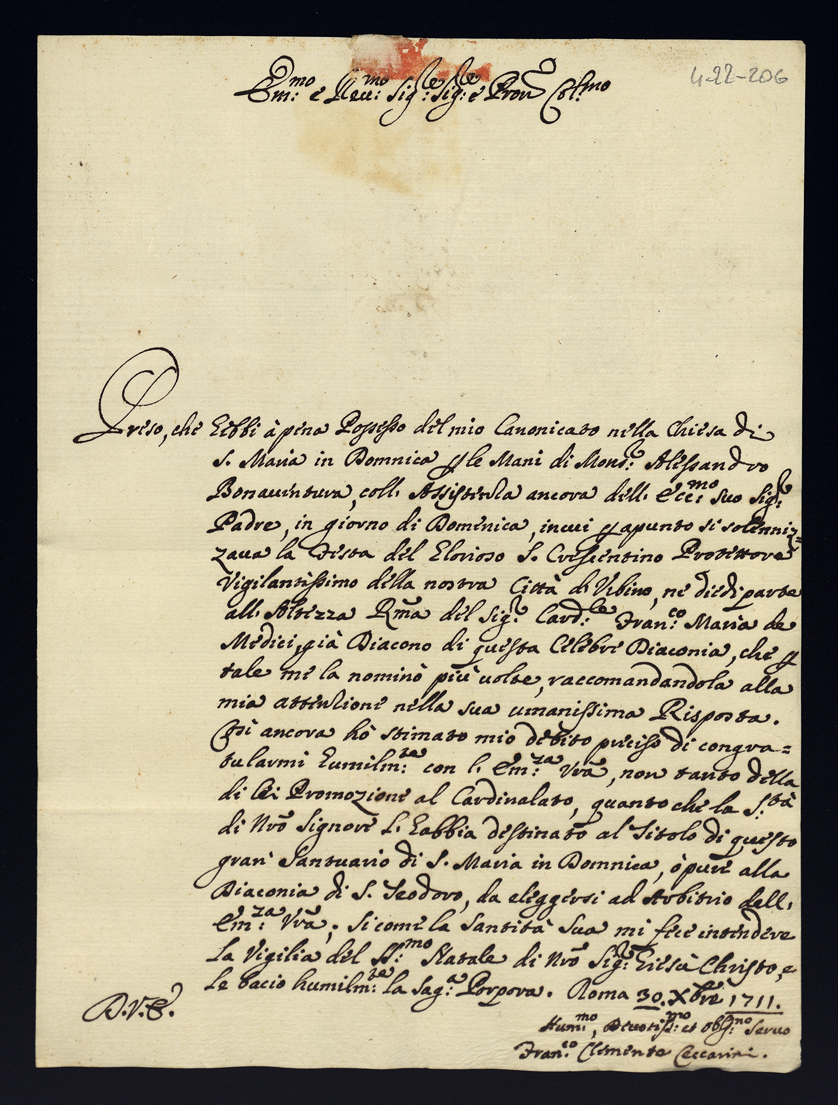 4-22-206
Em:mo e Reu:mo Sig:re Sig:re e Pron Col:mo
Preso, che hebbi à pena Possesso del mio Canonicato nella Chiesa di
S. Maria in Domnica p le Mani di Mons:r Alessandro
Bonauentura, coll' Assistenza ancora dell' Ecc:mo suo Sig:r
Padre, in giorno di Domenica, in cui p apunto si solenniz=
zaua la Festa del Glorioso S. Crescentino Protettore
Vigilantissimo della nostra Città d'Vrbino, ne diedi parte
all' Altezza Rma del Sig:r Card:le Fran:co Maria de
Medici, già Diacono di questa Celebre Diaconia, che p
tale me la nominò più uolte, raccomandandola alla
mia attenzione nella sua umanissima Risposta.
Così ancora hò stimato mio debito preciso di congra=
tularmi humilm:te con l' Em:za Vrã, non tanto della
di Lei Promozione al Cardinalato, quanto che la S:tà
di Nrõ Signore l' habbia destinato al Titolo di questo
gran' Santuario di S. Maria in Domnica, ò pure alla
Diaconia di S. Teodoro, da eleggersi ad Arbitrio dell'
Em:za Vrã; si come la Santità Sua mi fece intendere
la Vigilia del SS:mo Natale di Nrõ Sig:r Giesù Christo, e
le bacio humilm:te la Sag:a Porpora. Roma 30. Xbre 1711.
D.V.E.
Hum:mo, Deuotis:mo et obl:mo Seruo
Fran:co Clemente Ceccarini.